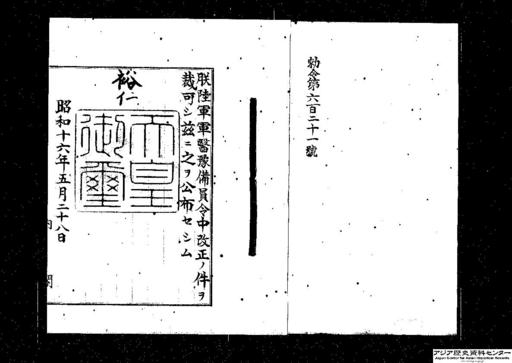 勅令第六百二十一號
朕陸軍軍醫豫備員令中改正ノ件ヲ
裁可シ玆ニ之ヲ公布セシム
裕仁
天皇御璽
昭和十六年五月二十八日
内閣
アジア歴史資料センター
Japan Center for Asian Historical Records